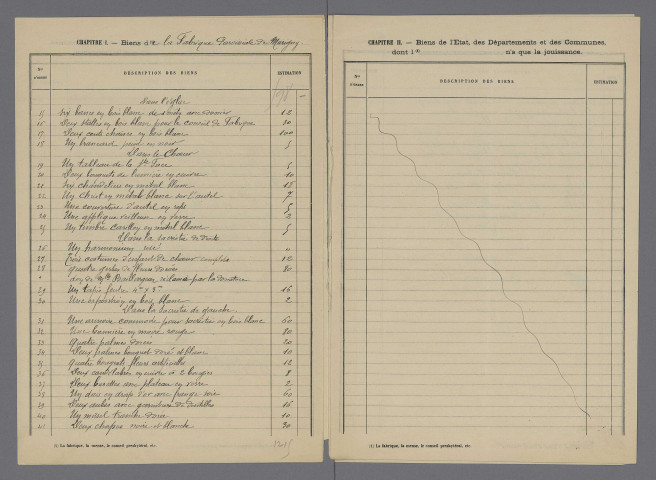 CHAPITRE I. — Biens de la Fabrique paroissiale de
Nos d'ordre
DESCRIPTION DES BIENS
ESTIMATION
Dans l'église
15 Six bancs en bois blanc de avec 12
16 Deux stalles en bois blanc pour le conseil de Fabrique 20
17 Deux cents chaises en bois blanc 100
18 Un brancard peint en noir 5
Dans le Chœur
19 Un tableau de la Ste Face 5
20 Deux de lumière en cuivre 10
21 Six chandeliers en métal blanc 18
22 Un christ en métal blanc sur l'autel 7
23 Une couverture d'autel en reps 5
24 Une applique en 2
25 Un timbre carillon en métal blanc 5
Dans la sacristie de droite
26 Un harmonium usé
27 Trois costumes d'enfant de chœur complets 12
28 quatre de fleurs 20
don de Mlle réclamé par la donatrice
29 Un tapis 16
30 Une exposition en bois blanc 2
Dans la sacristie de gauche
31 Une armoire commode pour sacristie en bois blanc 60
32 Une bannière en moire rouge 20
33 quatre palmes dorées 20
34 Deux palmes bouquet doré et blanc 10
35 quatre bouquets fleurs artificielles 12
36 Deux candélabres en cuivre à 2 bougies 8
37 Deux burettes avec plateau en verre 2
38 Un dais en drap d'or avec frange soie 60
39 Deux aubes avec garniture de dentelles 16
40 Un missel tranche dorée 10
41 Deux chapes noire et blanche 20
(1) La fabrique, la mense, le conseil presbytéral, etc.
CHAPITRE II. — Biens de l'Etat, des Départements et des Communes,
dont l* n'a que la jouissance.
Nos d'ordre
DESCRIPTION DES BIENS
ESTIMATION
(1) La fabrique, la mense, le conseil presbytéral, etc.